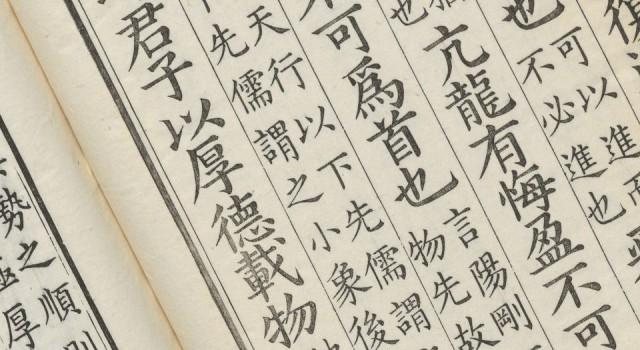 復
也
可以進而
不必進也
也
亢龍有悔盈不可
不可爲首也
言陽剛
物先故
天行以下先儒謂
先儒謂之小象後
君子以厚德載物
勢之順則
極厚